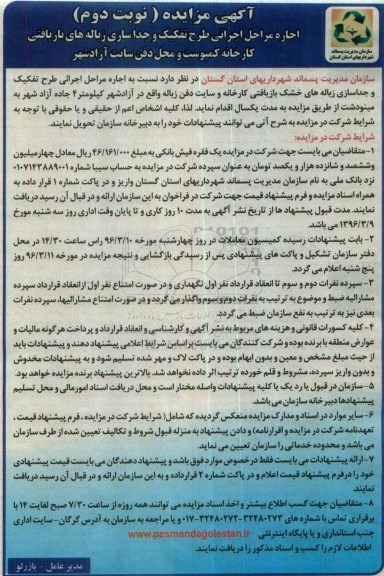 آگهی مزایده ( نوبت دوم )
اجاره مراحل اجرائی طرح تفکیک و جدا سازی زباله های بازیافتی
کارخانه کمپوست و محل دفن سایت آزادشهر
سازمان مدیریت پسماند
شهرداریهای استان گلستان
سازمان مدیریت پسماند شهرداریهای استان گلستان در نظر دارد نسبت به اجاره مراحل اجرائی طرح تفکیک
و جداسازی زباله های خشک بازیافتی کارخانه و سایت دفن زباله واقع در آزادشهر کیلومتر ۴ جاده آزاد شهر به
مینودشت از طریق مزایده به مدت یکسال اقدام نماید. لذا، کلیه اشخاص اعم از حقیقی و یا حقوقی با توجه به
شرایط شرکت در مزایده به شرح آتی می توانند پیشنهادات خود را به دبیرخانه سازمان تحویل نمایند.
شرایط شرکت در مزایده:
۱- متقاضیان می بایست جهت شرکت در مزایده یک فقره فیش بانکی به مبلغ ۴۶/۱۶۱/۰۰۰ ریال معادل چهار میلیون
وششصد و شانزده هزار و یکصد تومان به عنوان سپرده شرکت در مزایده به حساب سیبا شماره ۰۱۰۷۱۴۳۸۸۹۰۰۱
نزد بانک ملی به نام سازمان مدیریت پسماند شهرداریهای استان گلستان واریز و در پاکت شماره ۱ قرار داده به
همراه اسناد مزایده و فرم پیشنهاد قیمت جهت شرکت در فراخوان به این سازمان ارائه و در قبال آن رسید دریافت
نمایند. مدت قبول پیشنهاد ها از تاریخ نشر آگهی به مدت ۱۰ روز کاری و تا پایان وقت اداری روز سه شنبه مورخ
۱۳۹۶/۳/۹ می باشد.
۲- بابت پیشنهادات رسیده کمیسیون معاملات در روز چهارشنبه مورخه ۹۶/۳/۱۰ راس ساعت ۱۴/۳۰ در محل
دفتر سازمان تشکیل و پاکت های پیشنهادی پس از رسیدگی بازگشایی و نتیجه مزایده در مورخه ۹۶/۳/۱۱ روز
پنج شنبه اعلام می گردد.
۳- سپرده نفرات دوم و سوم تا انعقاد قرارداد نفر اول نگهداری و در صورت امتناع نفر اول از انعقاد قرارداد سپرده
مشارالیه ضبط و موضوع به ترتیب به نفرات دوم و سوم واگذار می گردد و در صورت امتناع مشارالیها، سپرده نفرات
بعدی نیز به ترتیب به نفع سازمان ضبط می گردد.
۴- کلیه کسورات قانونی و هزینه های مربوط به نشر آگهی و کارشناسی و انعقاد قرارداد و پرداخت هر گونه مالیات و
عوارض منطقه با برنده بوده و شرکت کنندگان می بایست بر اساس شرایط اعلامی پیشنهاد دهند و پیشنهادات باید
از حیث مبلغ مشخص و معین و بدون ابهام بوده و در پاکت لاک و مهر شده تسلیم شود و به پیشنهادات مخدوش
و بدون واریز سپرده، مشروط و قلم خورده ترتیب اثر داده نخواهد شد. بالاترین پیشنهاد برنده مزایده خواهد بود.
۵- سازمان در قبول یا رد یک یا کلیه پیشنهادات واصله مختار است و محل دریافت اسناد امور مالی و محل تسلیم
پیشنهادها دبیرخانه سازمان می باشد.
۶- سایر موارد در اسناد و مدارک مزایده منعکس گردیده که شامل( شرایط شرکت در مزایده، فرم پیشنهاد قیمت،
تعهدنامه شرکت در مزایده و اقرارنامه) و دادن پیشنهاد به منزله قبول شروط و تکالیف تعیین شده از طرف سازمان
می باشد و محدوده خدماتی را سازمان تعیین می نماید.
۷- ارائه پیشنهادات می بایست فقط در خصوص موارد فوق باشد و پیشنهاد دهندگان می بایست قیمت پیشنهادی
خود را در فرم پیشنهاد قیمت اعلام و در پاکت شماره ۲ قرار داده و به این سازمان ارائه و در قبال آن رسید دریافت
نمایند.
۸- متقاضیان جهت کسب اطلاع بیشتر و اخذ اسناد مزایده می توانند همه روزه از ساعت ۷/۳۰ صبح لغایت ۱۴ با
برقراری تماس با شماره های ۳۲۴۸۰۲۷۳-۳۲۴۸۰۲۷۲-۰۱۷ و یا مراجعه به سازمان به آدرس گرگان – سایت اداری
جنب استانداری و یا پایگاه اینترنتی www.pasmandegolestan.ir
اطلاعات لازم را کسب و اسناد مذکور را دریافت نمایند.
مدیر عامل - یازرلو